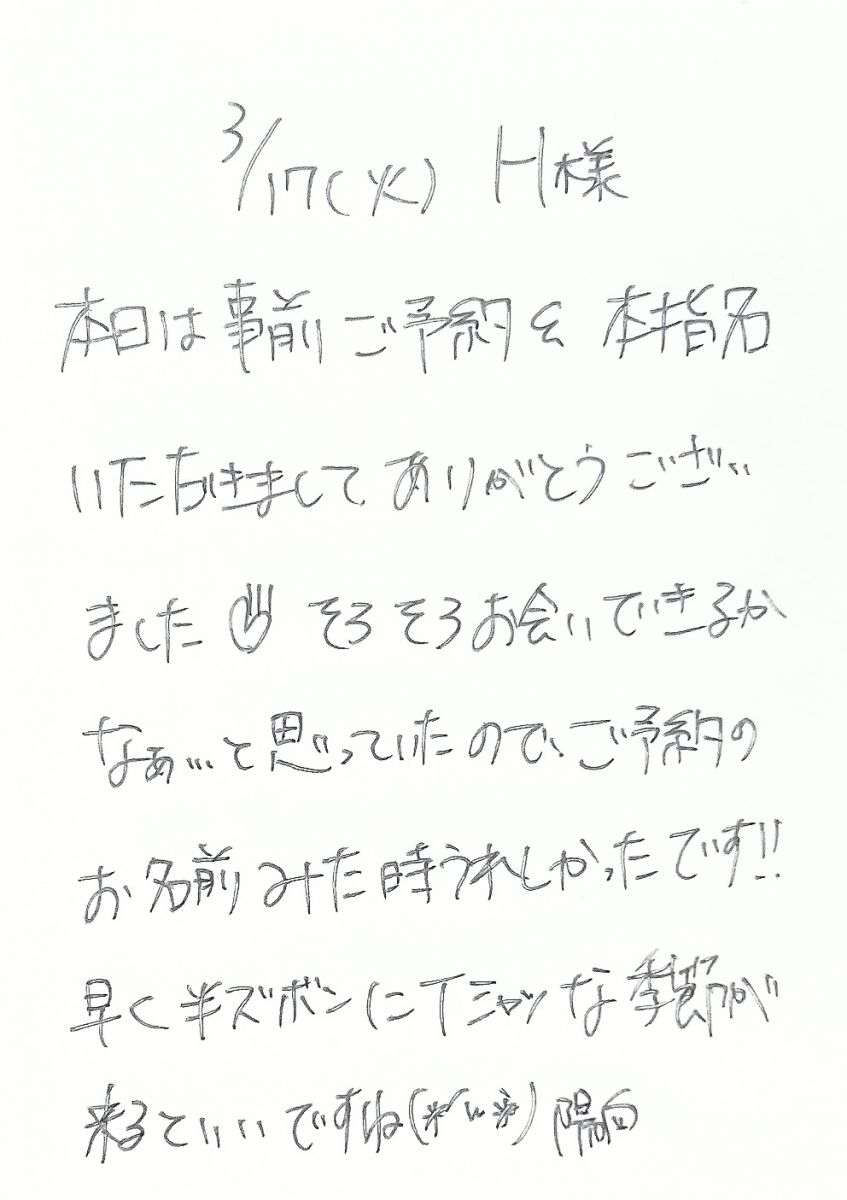 3/17(火) H様
本日は事前ご予約を 本指名
いただきまして ありがとうござい
ました そろそろお会いできるか
なぁ...と思っていたので、ご予約の
お名前みた時うれしかったです!!
早く半ズボンにTシャツな季節が
来るといいですね(*´ω`*) 陽向